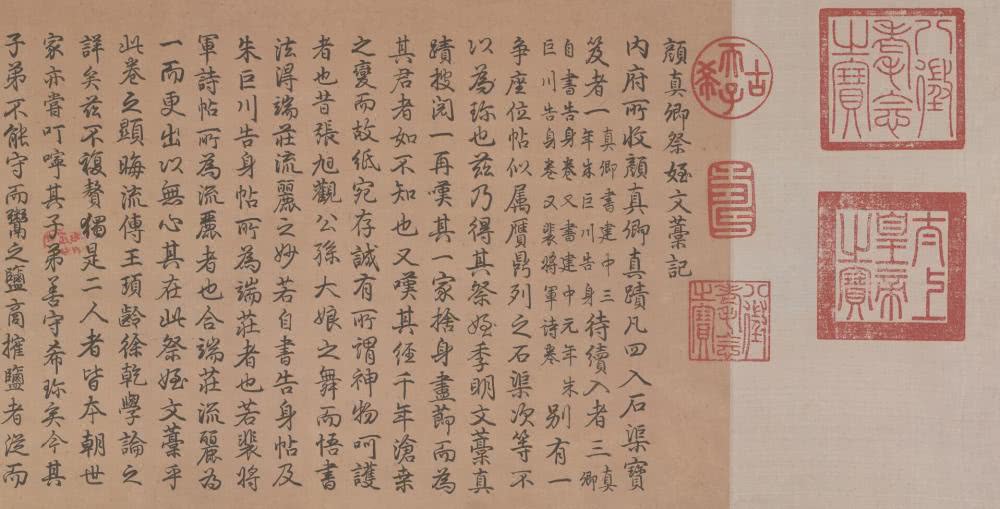 八徵耄念之寶
太上皇帝之寶
古希天子
八徵耄念之寶
顏真卿祭姪文藁記
內府所收顏真卿真蹟凡四入石渠寶
笈者一真卿書建中三年朱巨川告身待續入者三真卿
自書告身卷又書建中元年朱巨川告身卷又裴將軍詩卷別有一
爭座位帖似属贗鼎列之石渠次等不
以為珍也茲乃得其祭姪季明文藁真
蹟披閱一再嘆其一家捨身盡節而為
其君者如不知也又嘆其經千年滄桑
之變而故紙宛存誠有所謂神物呵護
者也昔張旭觀公孫大娘之舞而悟書
法得端莊流麗之妙若自書告身帖及
朱巨川告身帖所為端莊者也若裴將
軍詩帖所為流麗者也合端莊流麗為
一而更出以無心其在此祭姪文藁乎
此卷之顯晦流傳王頊齡徐乾學論之
詳矣茲不複贅獨是二人者皆本朝世
家亦嘗叮嚀其子弟善守希珍矣今其
子弟不能守而鬻之鹽商搉鹽者從而